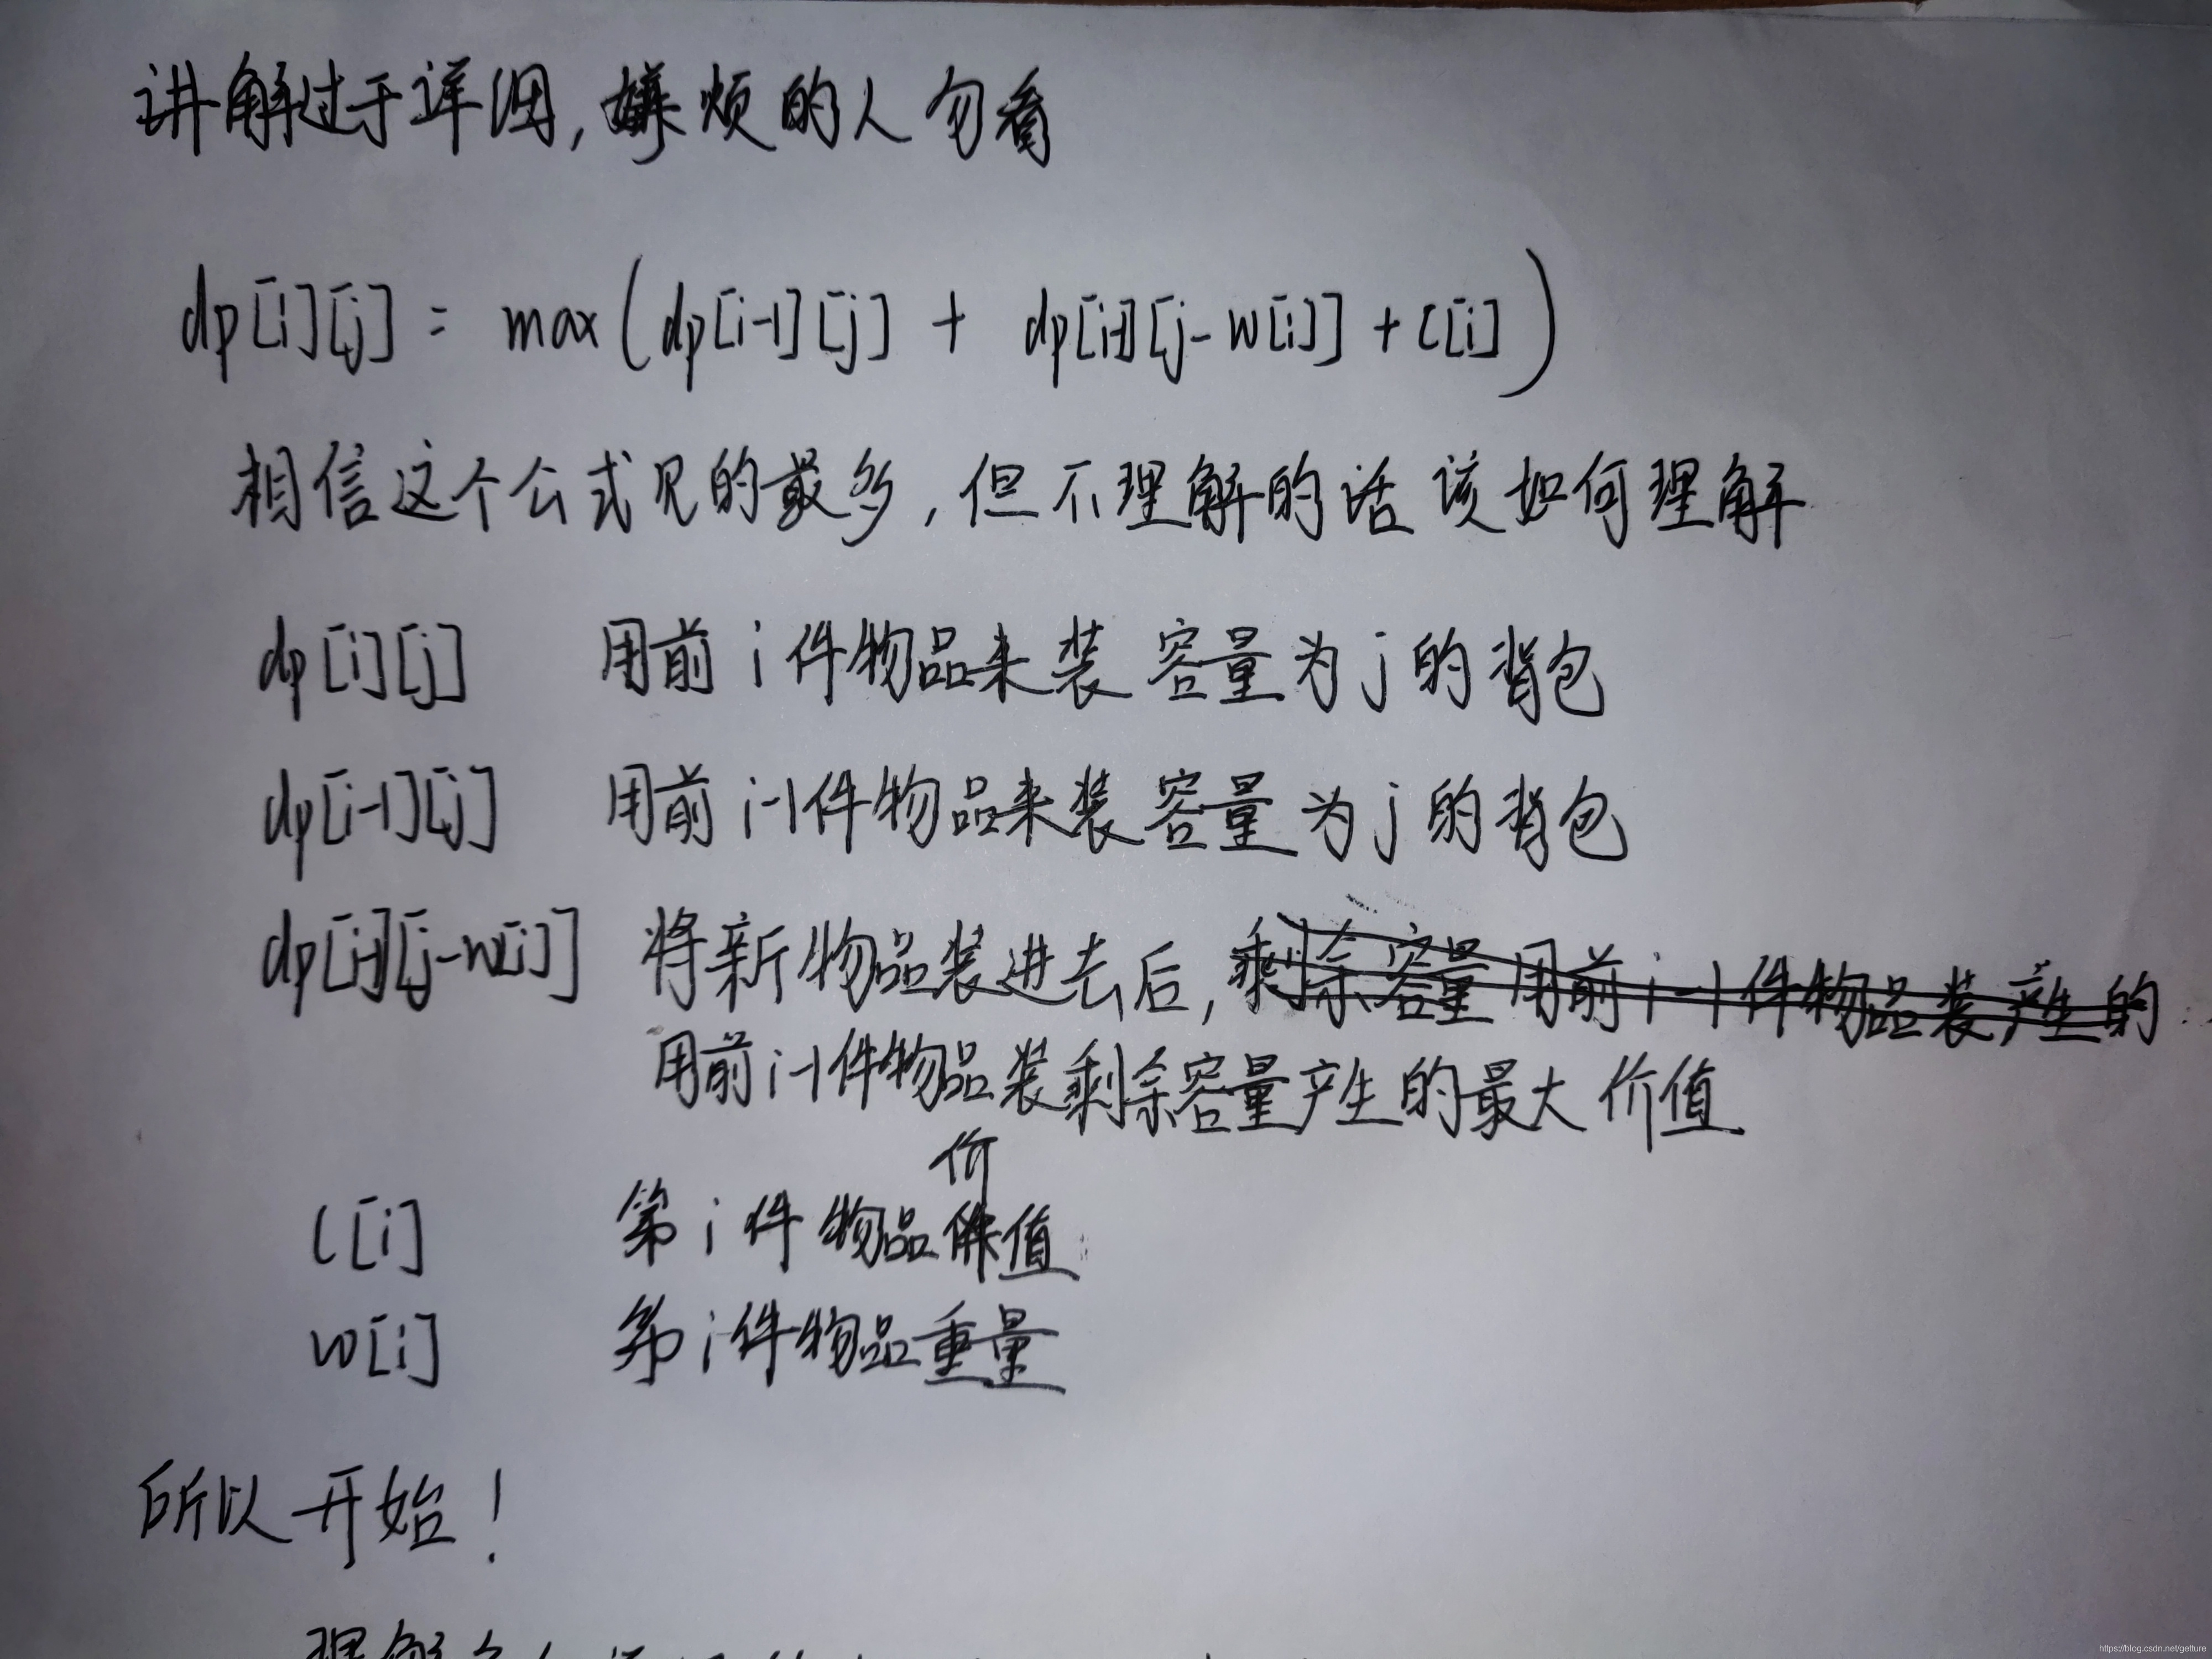 讲解过于详细,嫌烦的人勿看
dp[i][j] = max(dp[i-1][j] + dp[i-1][j-w[i]] + c[i])
相信这个公式见的最多,但不理解的话该如何理解
dp[i][j] 用前i件物品来装容量为j的背包
dp[i-1][j] 用前i-1件物品来装容量为j的背包
dp[i-1][j-w[i]] 将新物品装进去后,剩余容量用前i-1件物品装产生的
用前i-1件物品装剩余容量产生的最大价值
价
c[i] 第i件物品值
w[i] 第i件物品重量
所以开始!
https://blog.csdn.net/getture